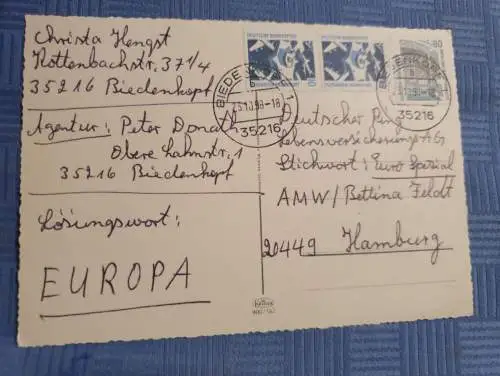 Christa Hengst
Rottenbachstr. 37 1/4
35216 Biedenkopf
Agentur: Peter Donat
Obere Lahnstr. 1
35216 Biedenkopf
Lösungswort:
EUROPA
DEUTSCHE BUNDESPOST
DEUTSCHE BUNDESPOST
80
BIEDENKOPF 1
-18
35216
35216
Deutscher Ring
Lebensversicherungs AG
Stichwort: Euro Spezial
AMW/Bettina Feldt
20449 Hamburg